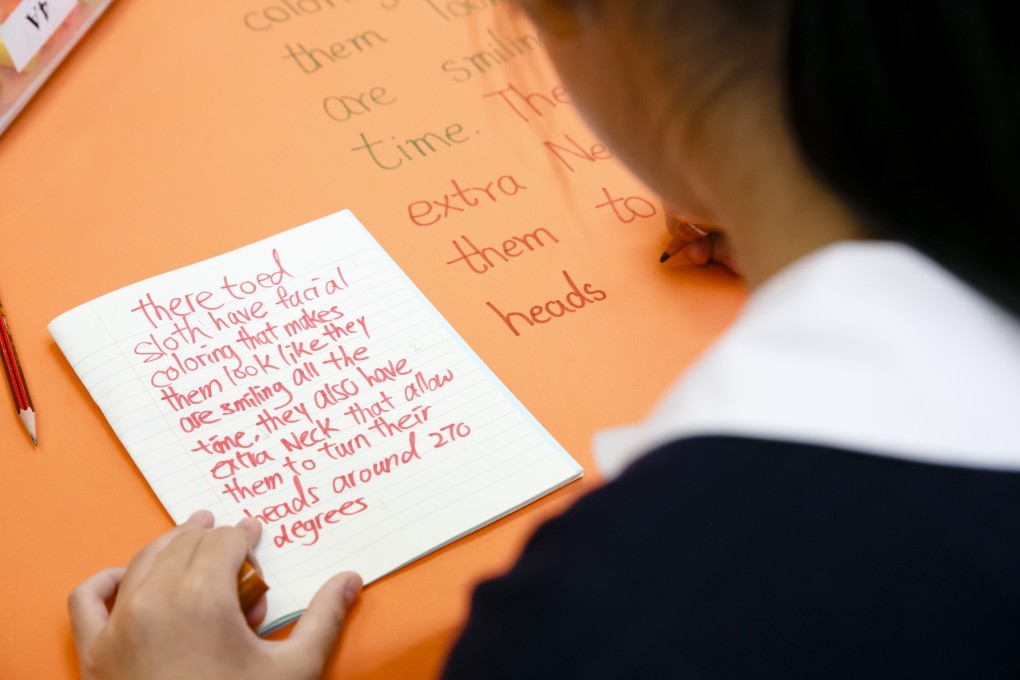 there toed
sloth have facial
coloring that makes
them look like they
are smiling all the
time, they also have
extra Neck that allow
them to turn their
heads around 270
degrees
them smiling
are The
time.
extra
them to
heads